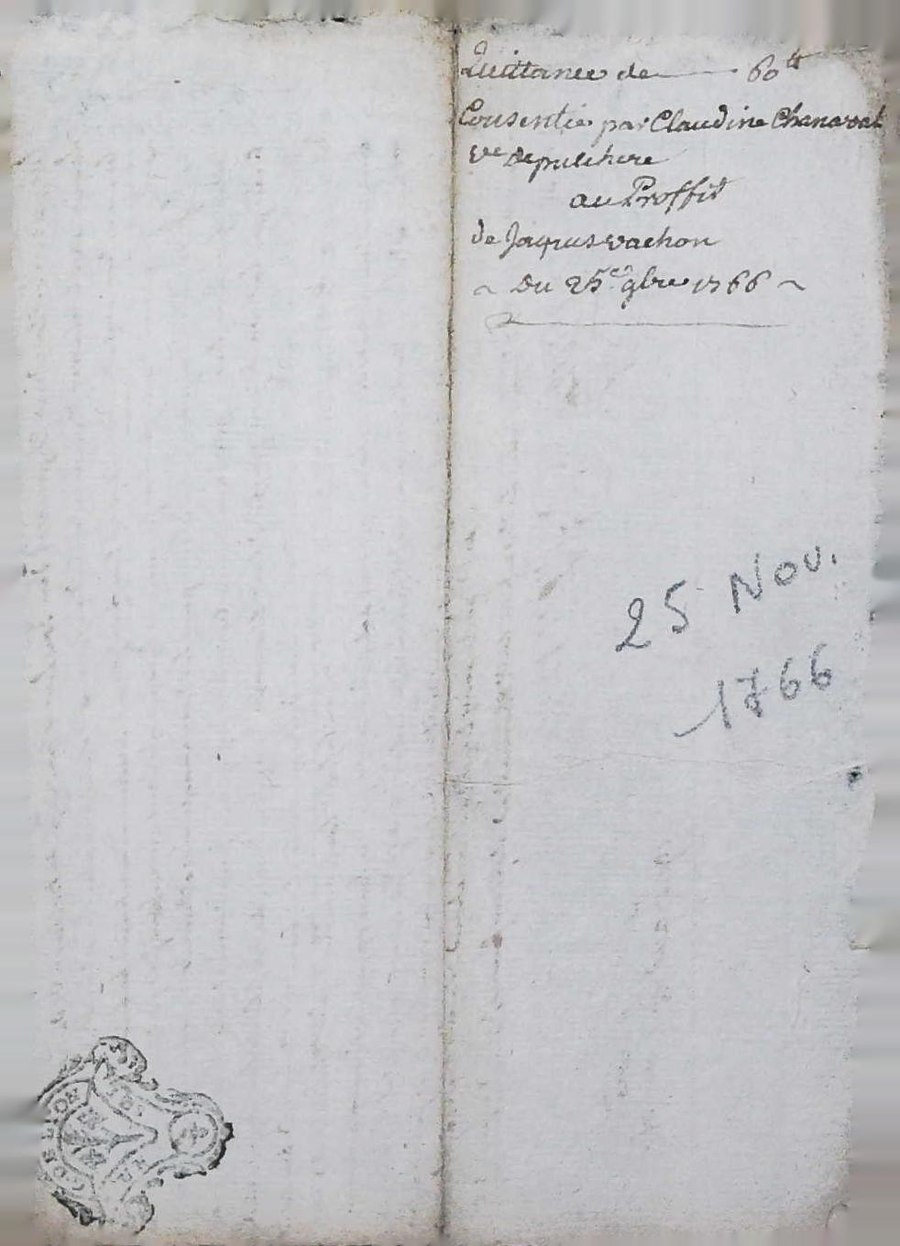 Quittance de — 60ᵗᵗ
Consentie par Claudine Chanavat
vᵉ depulchire
au Proffit
de Jaques vachon
~ Du 25ᵉ 9bre 1766 ~
25 Nov.
1766